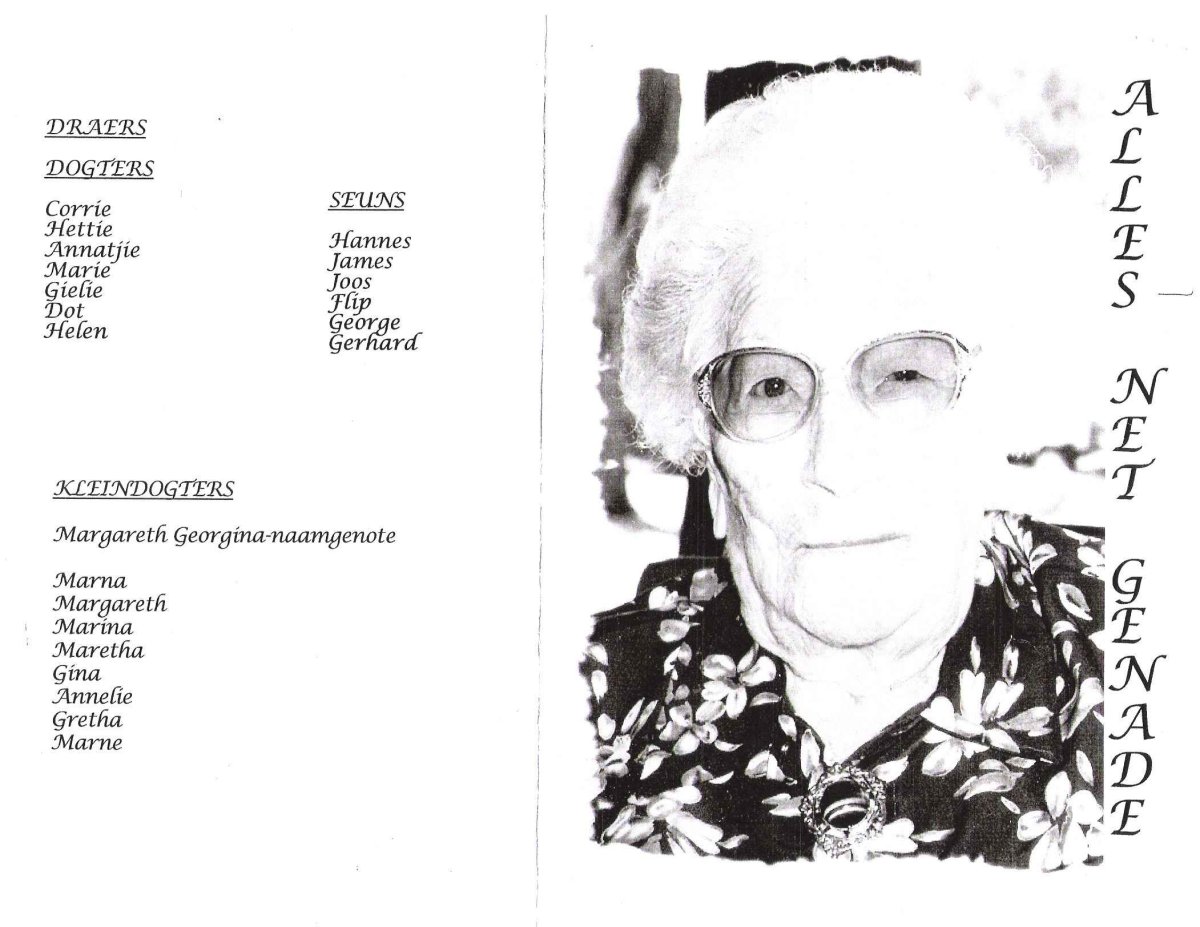 DRAERS
DOGTERS
Corrie
Hettie
Annatjie
Marie
Gielie
Dot
Helen
SEUNS
Hannes
James
Joos
Flip
George
Gerhard
KLEINDOGTERS
Margareth Georgina-naamgenote
Marna
Margareth
Marina
Maretha
Gina
Annelie
Gretha
Marne
ALLES NET GENADE